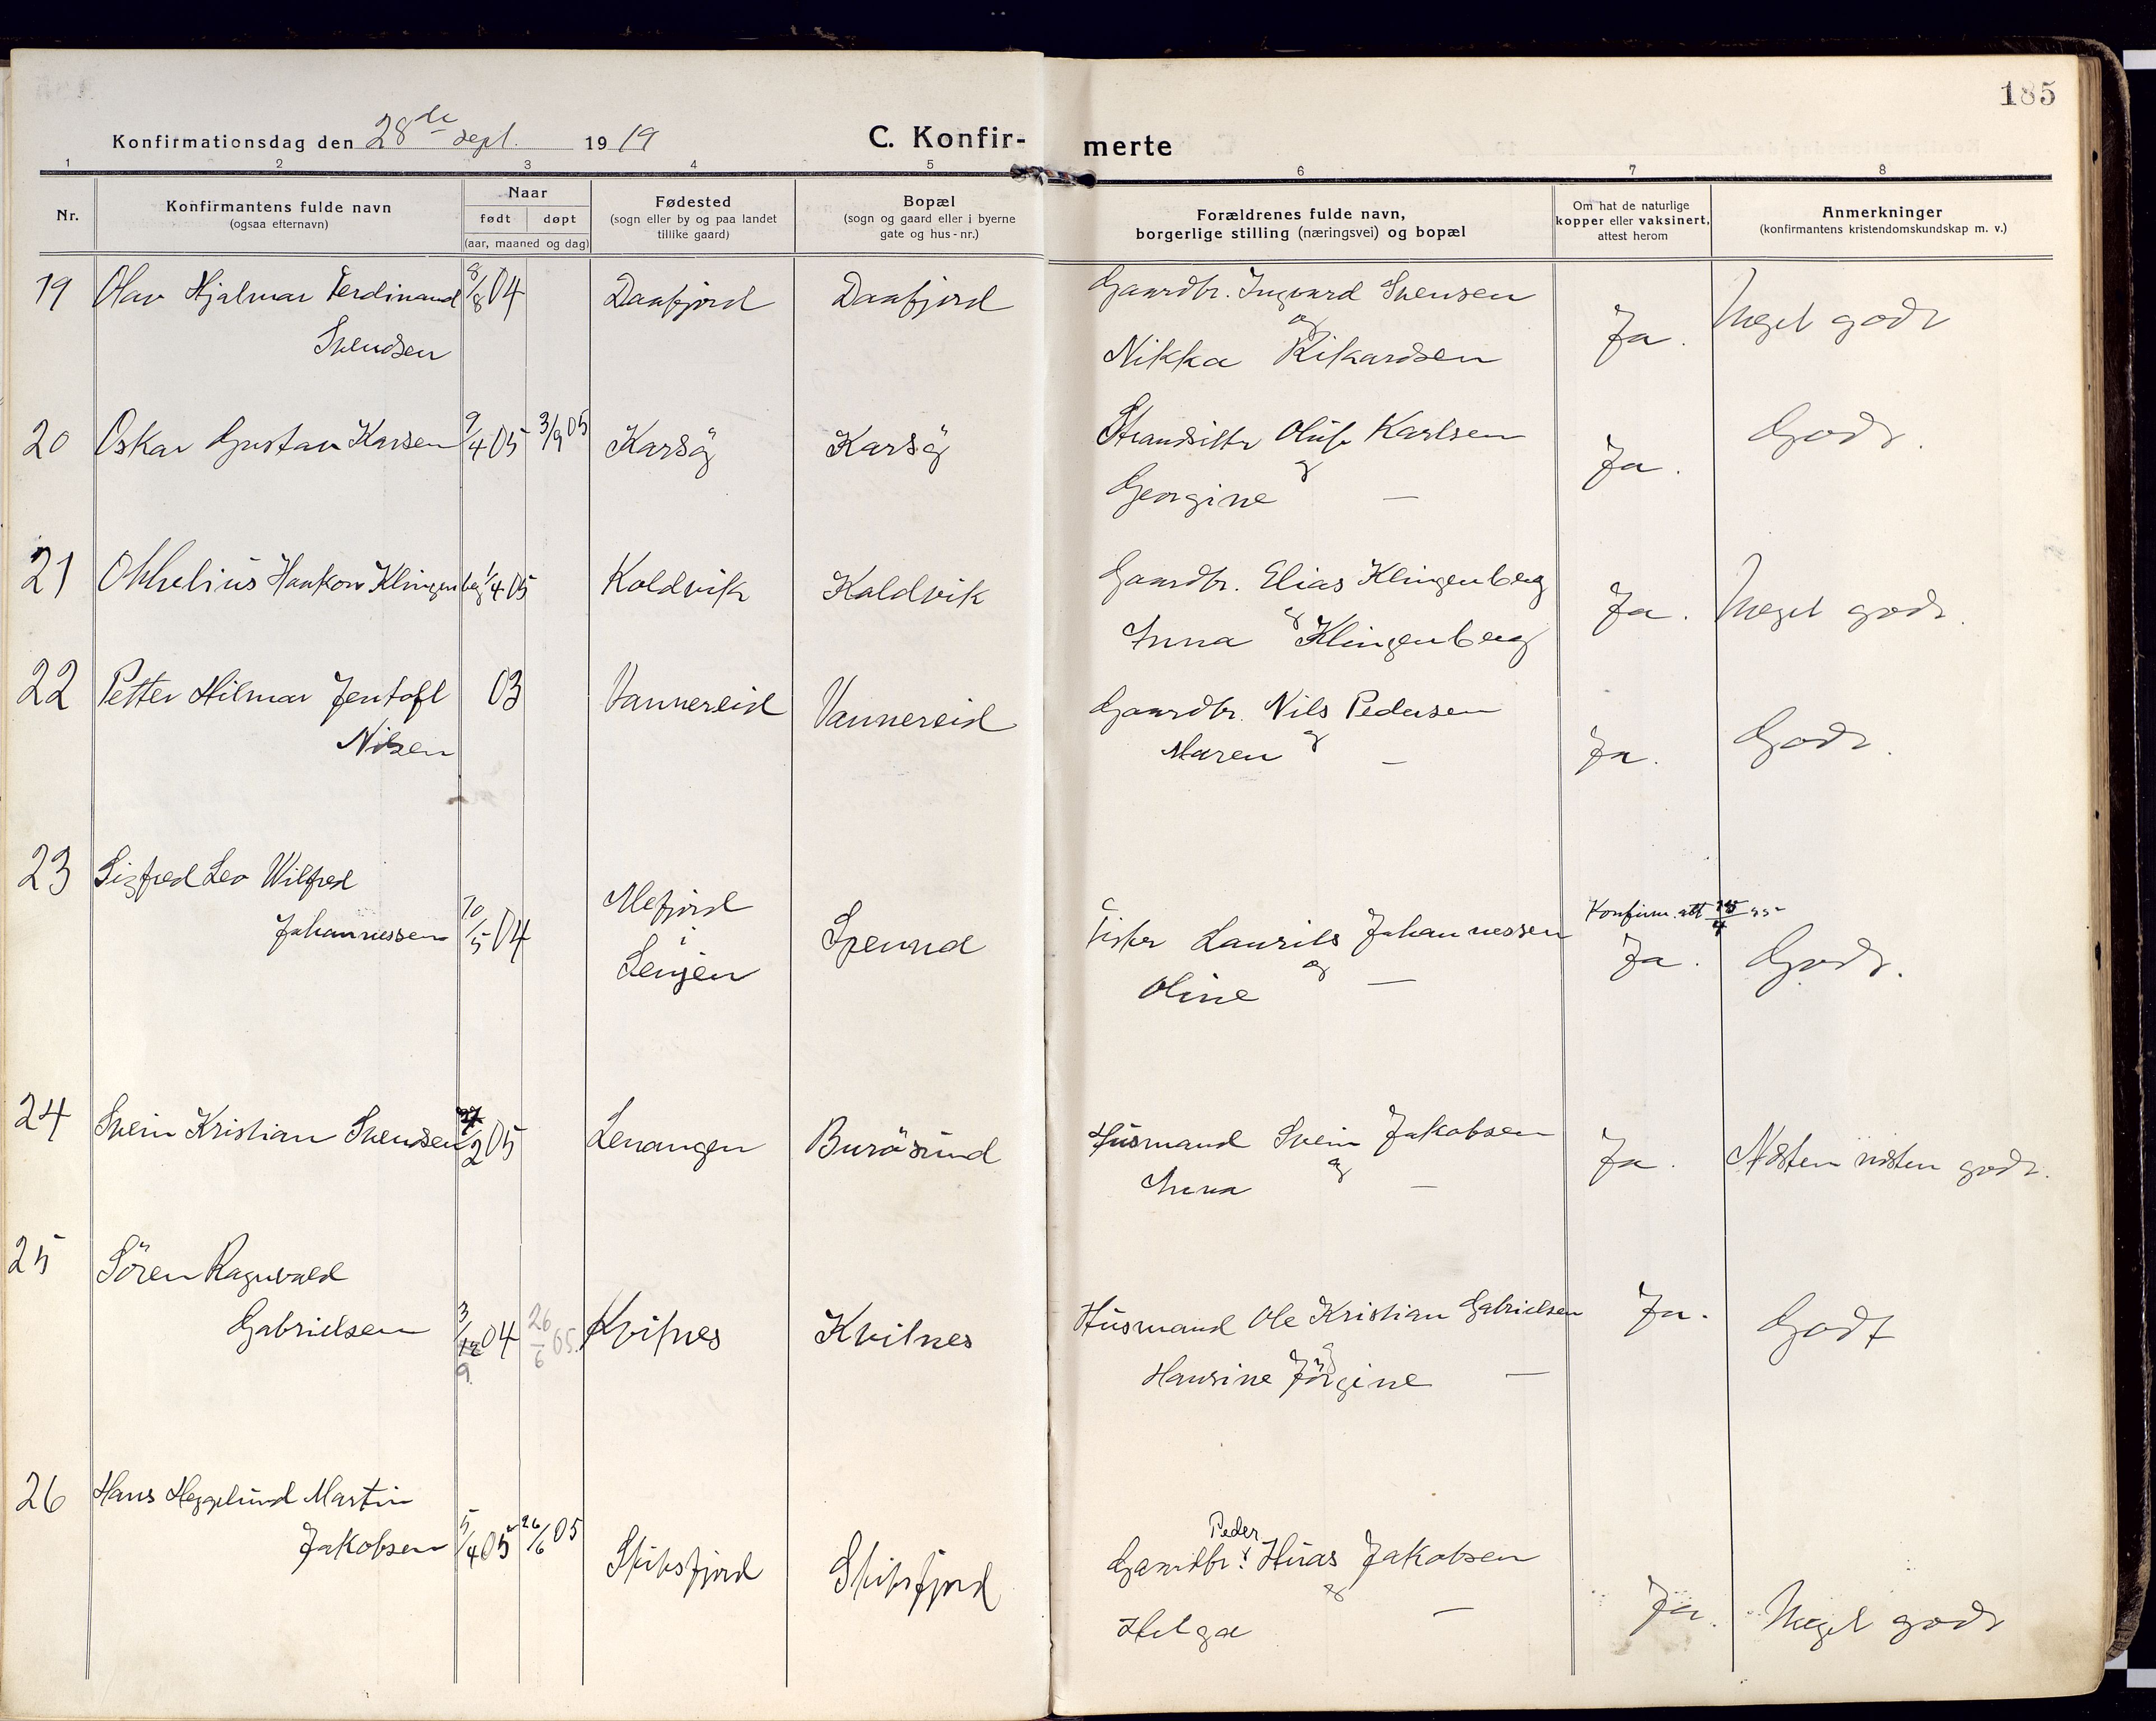 185
Konfirmationsdag den 28de sept. 1919
C. Konfir-merte
1 2 3 4 5 6 7 8
Nr.
Konfirmantens fulde navn
(ogsaa efternavn)
Naar
født døpt
(aar, maaned og dag)
Fødested
(sogn eller by og paa landet
tillike gaard)
Bopæl
(sogn og gaard eller i byerne
gate og hus-nr.)
Forældrenes fulde navn,
borgerlige stilling (næringsvei) og bopæl
Om hat de naturlige
kopper eller vaksinert,
attest herom
Anmerkninger
(konfirmantens kristendomskundskap m. v.)
19 Olav Hjalmar Ferdinand 8/8 04 Daafjord Daafjord Gaardbr. Ingvard Svensen
Svendsen og Ja. Meget godt
Nikka Rikardsen
20 Oskar Gustav Karsen 9/4 05 3/9 05 Karsö Karsö Strandsitter Oluf Karlsen Ja. Godt.
og
Georgine —
21 Othelius Haakon Klingenberg 1/4 05 Koldvik Kaldvik Gaardbr. Elias Klingenberg Ja. Meget godt.
og
Anna Klingenberg
22 Petter Hilmar Jentoft 03 Vannereid Vannereid Gaardbr. Nils Pedersen
Nilsen og Ja. Godt.
Maren —
23 Sigfred Leo Wilfred
Johannessen 10/5 04 Mefjord i Senjen Spenna Fisker Laurits Johannessen Ja. Godt.
Konfirm. att 15/4 55
og
Oline —
24 Svein Kristian Svendsen /2 05 Lenangen Burösund Husmand Svein Jakobsen Ja. Næsten næsten godt.
og
Anna —
25 Sören Ragnvald
Gabrielsen 3/12 04 26/6 05. Kvitnes Kvitnes Husmand Ole Kristian Gabrielsen Ja. Godt
9 og
Hansine Jörgine —
26 Hans Heggelund Martin
Jakobsen 5/4 05 26/6 05 Skipsfjord Skipsfjord Gaardbr. Peder Hiias Jakobsen
og
Helga — Ja. Meget godt